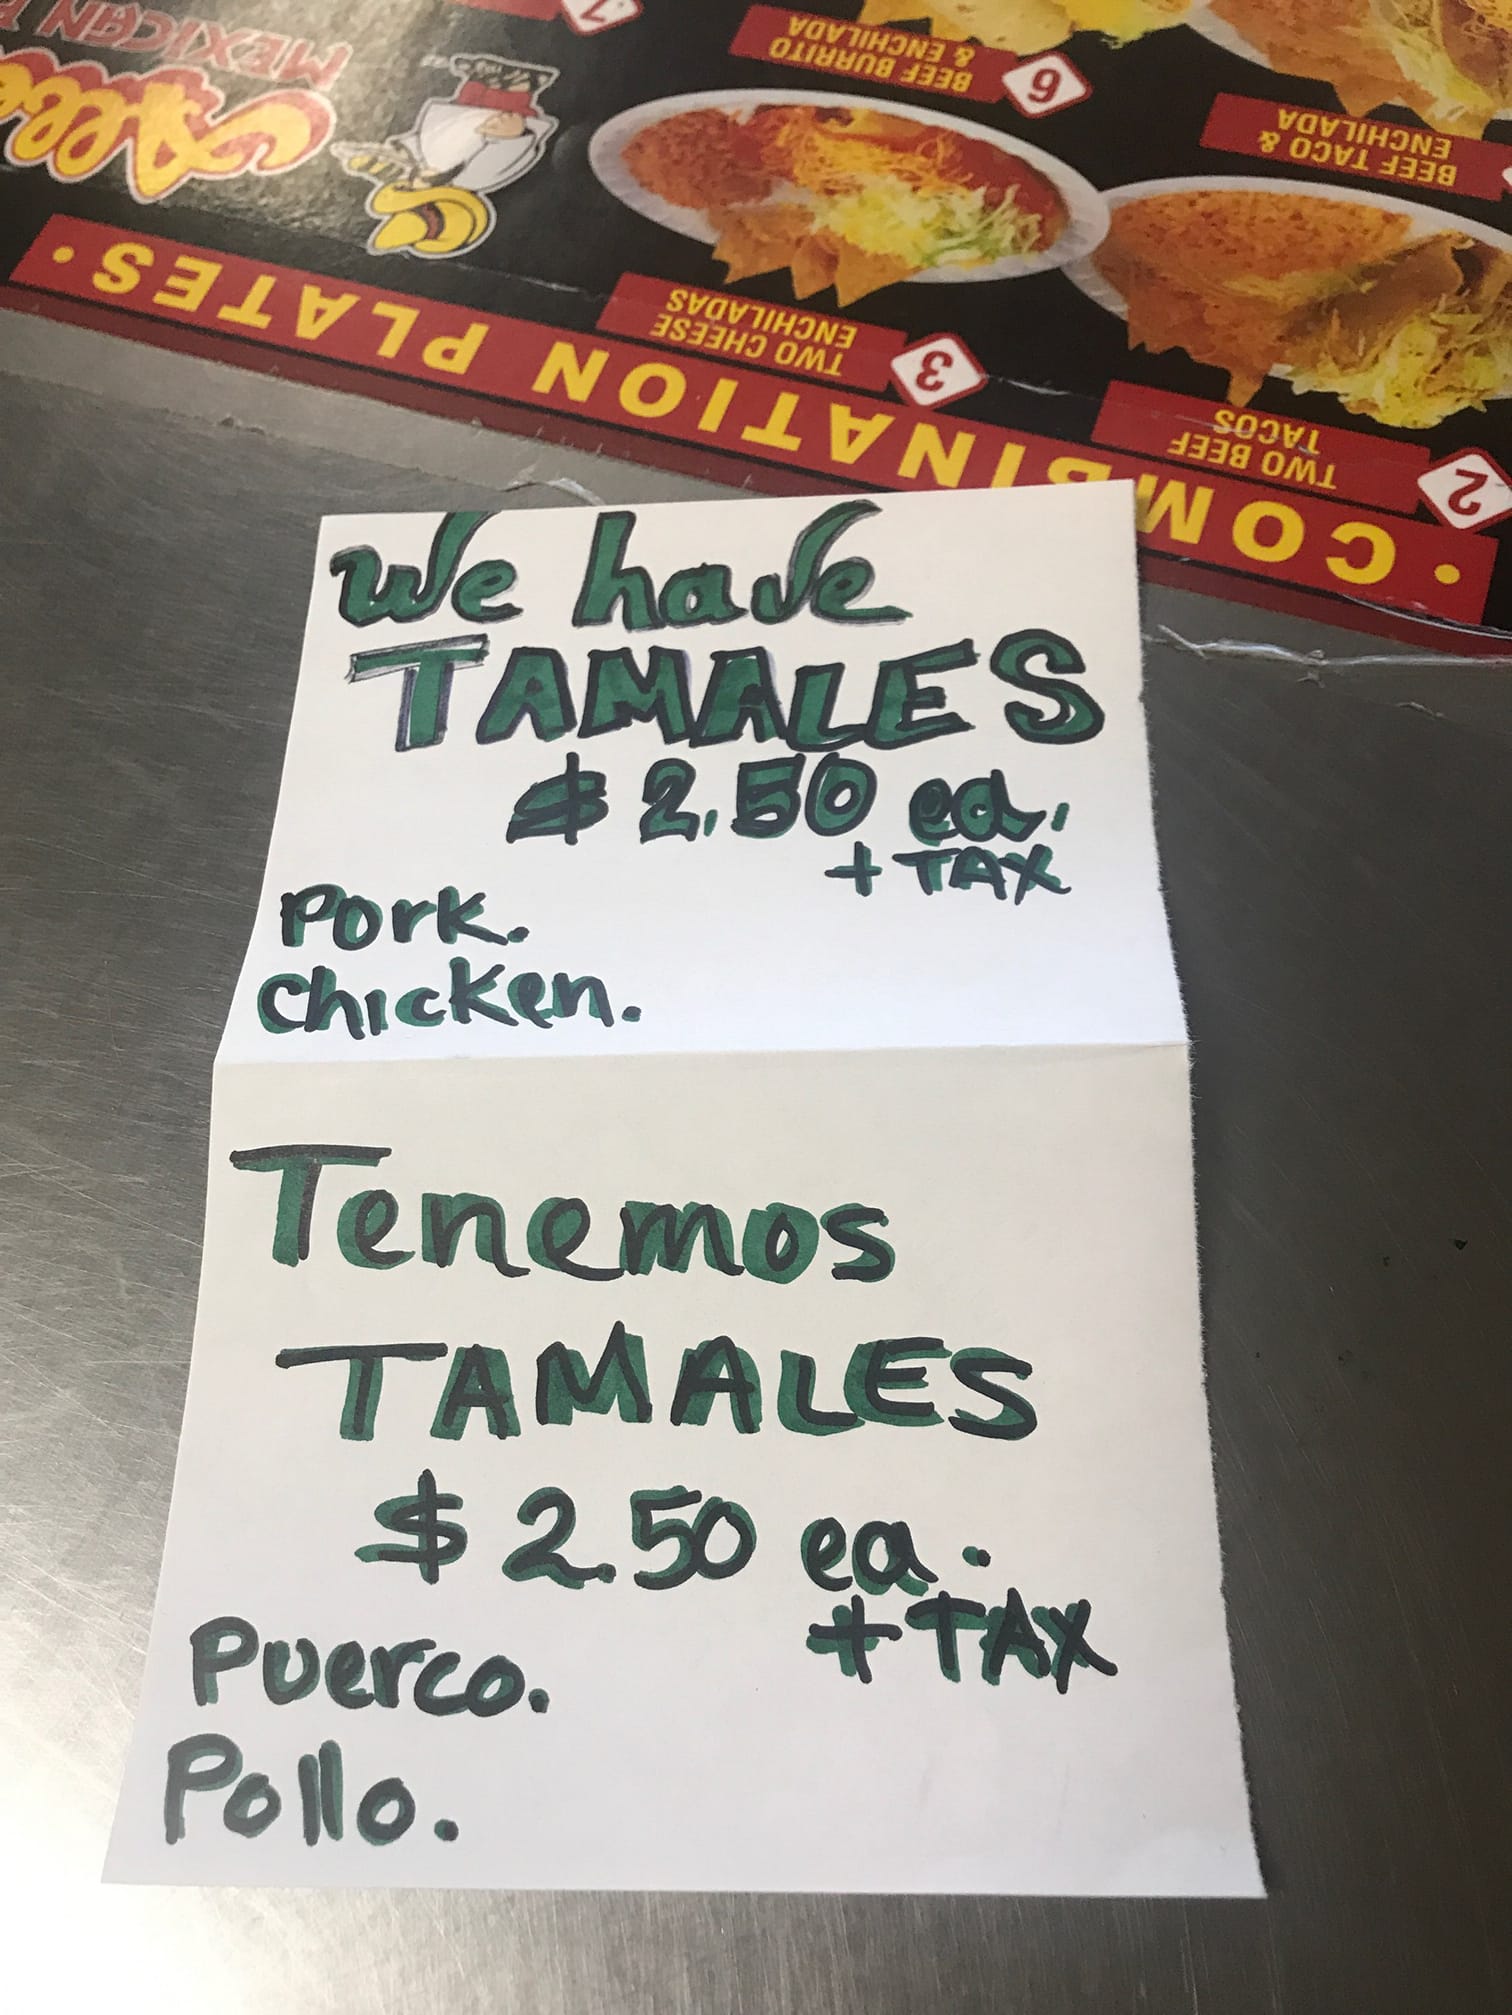 We have
TAMALES
$2.50 ea.
+ TAX
Pork.
Chicken.
Tenemos
TAMALES
$2.50 ea.
+ TAX
Puerco.
Pollo.
• COMBINATION PLATES •
2
TWO BEEF
TACOS
3
TWO CHEESE
ENCHILADAS
BEEF TACO &
ENCHILADA
6
BEEF BURRITO
& ENCHILADA
MEXICAN